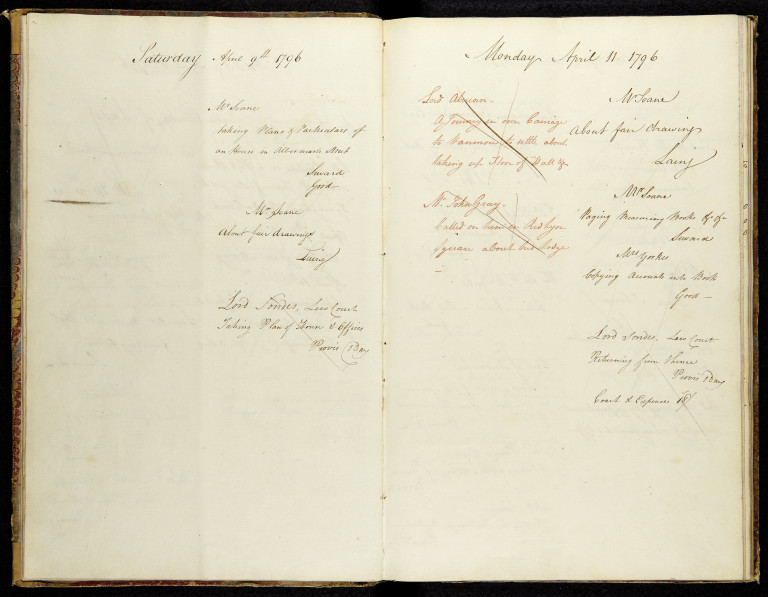 Saturday April 9th 1796
Mr Soane
taking Plans & Particulars of
an House in Albemarle Street
Seward
Good
Mr Soane
About fair drawings
Laing
Lord Sondes, Lees Court
Taking Plan of House & Offices
Provis 1 Day
Monday April 11 1796
Lord Abercorn
A Journey in own Carriage
to Stanmore to settle about
taking up Floor of Hall &c
Mr John Gray
Called on him in Red Lyon
Square about his Lodge
Mr Soane
About fair drawings
Laing
Mr Soane
Paging Measuring Books &c &c
Seward
Mrs Yorke
Copying Accounts into Book
Good
Lord Sondes, Lees Court
Returning from thence
Provis 1 Day
Coach & Expences